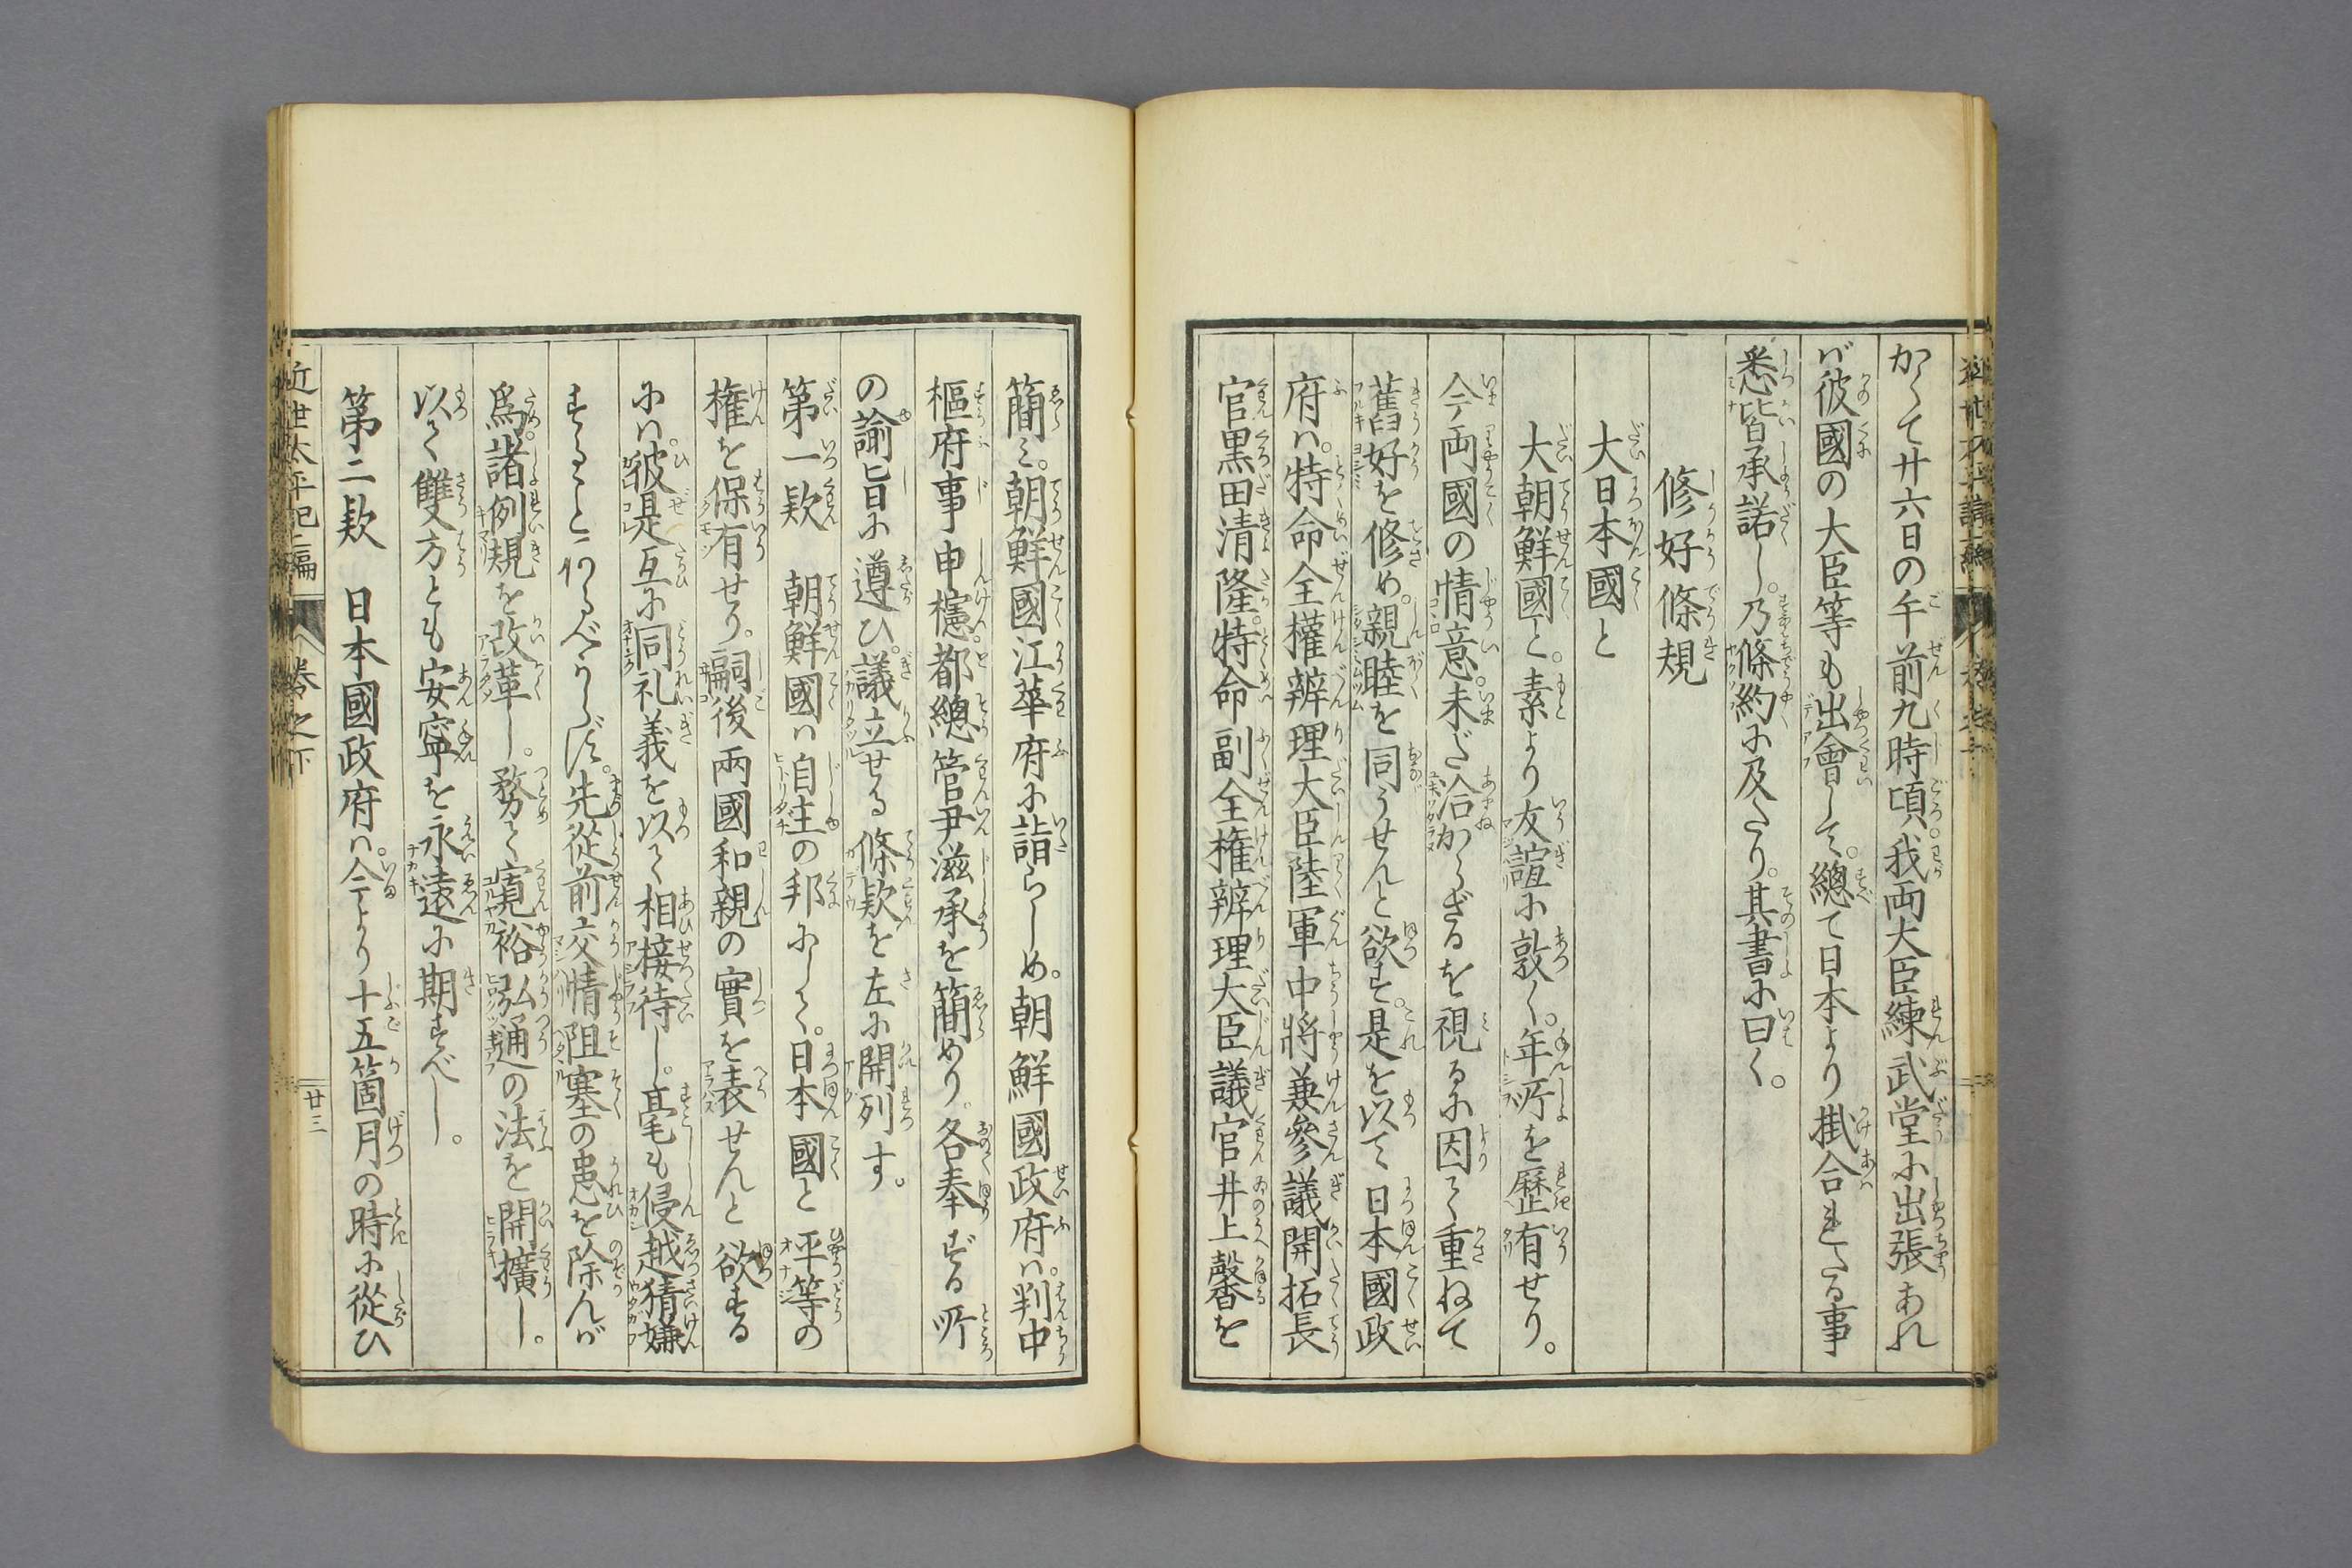 かくて廿六日の午前九時頃。我両大臣練武堂に出張あれ
ば彼國の大臣等も出會して。總て日本より掛合れたる事
悉皆承諾し。乃條約に及たり。其書に曰く。
修好條規
大日本國と
大朝鮮國と。素より友誼に敦く。年所を歴有せり。
今両國の情意。未だ洽からざるを視るに因て重ねて
舊好を修め。親睦を同うせんと欲す。是を以て日本國政
府ハ。特命全權辨理大臣陸軍中將兼參議開拓長
官黒田清隆。特命副全権辨理大臣議官井上馨を
簡ミ。朝鮮國江華府に詣らしめ。朝鮮國政府ハ。判中
樞府事申櫶。都總管尹滋承を簡めり。各奉ずる所
の諭旨に遵ひ。議立せる條欵を左に開列す。
第一欵 朝鮮國ハ自主の邦にして。日本國と平等の
権を保有せり。嗣後両國和親の實を表せんと欲する
にハ。彼是互に同礼義を以て相接待し。毫も侵越猜嫌
することあるべからず。先從前交情阻塞の患を除んが
為。諸例規を改革し。務て寛裕弘通の法を開擴し。
以て雙方とも安寧を永遠に期すべし。
第二欵 日本國政府ハ。今より十五箇月の時に從ひ
近世太平記二編 巻之下
廿三